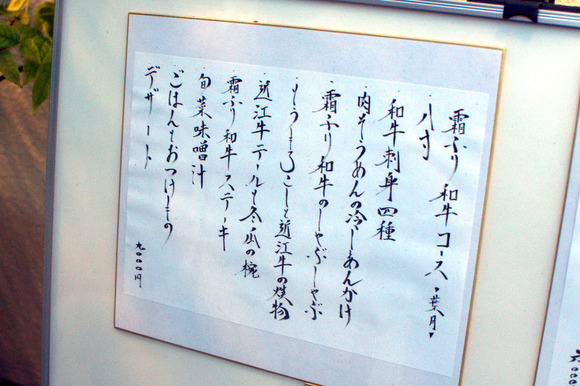 霜ふり和牛コース ・葉月・
八寸
和牛刺身四種
肉そうめんの冷しあんかけ
霜ふり和牛のしゃぶしゃぶ
もうもろこしと近江牛の焼物
近江牛テールと冬瓜の椀
霜ふり和牛ステーキ
旬菜味噌汁
ごはんとおつけもの
デザート
九〇〇〇円